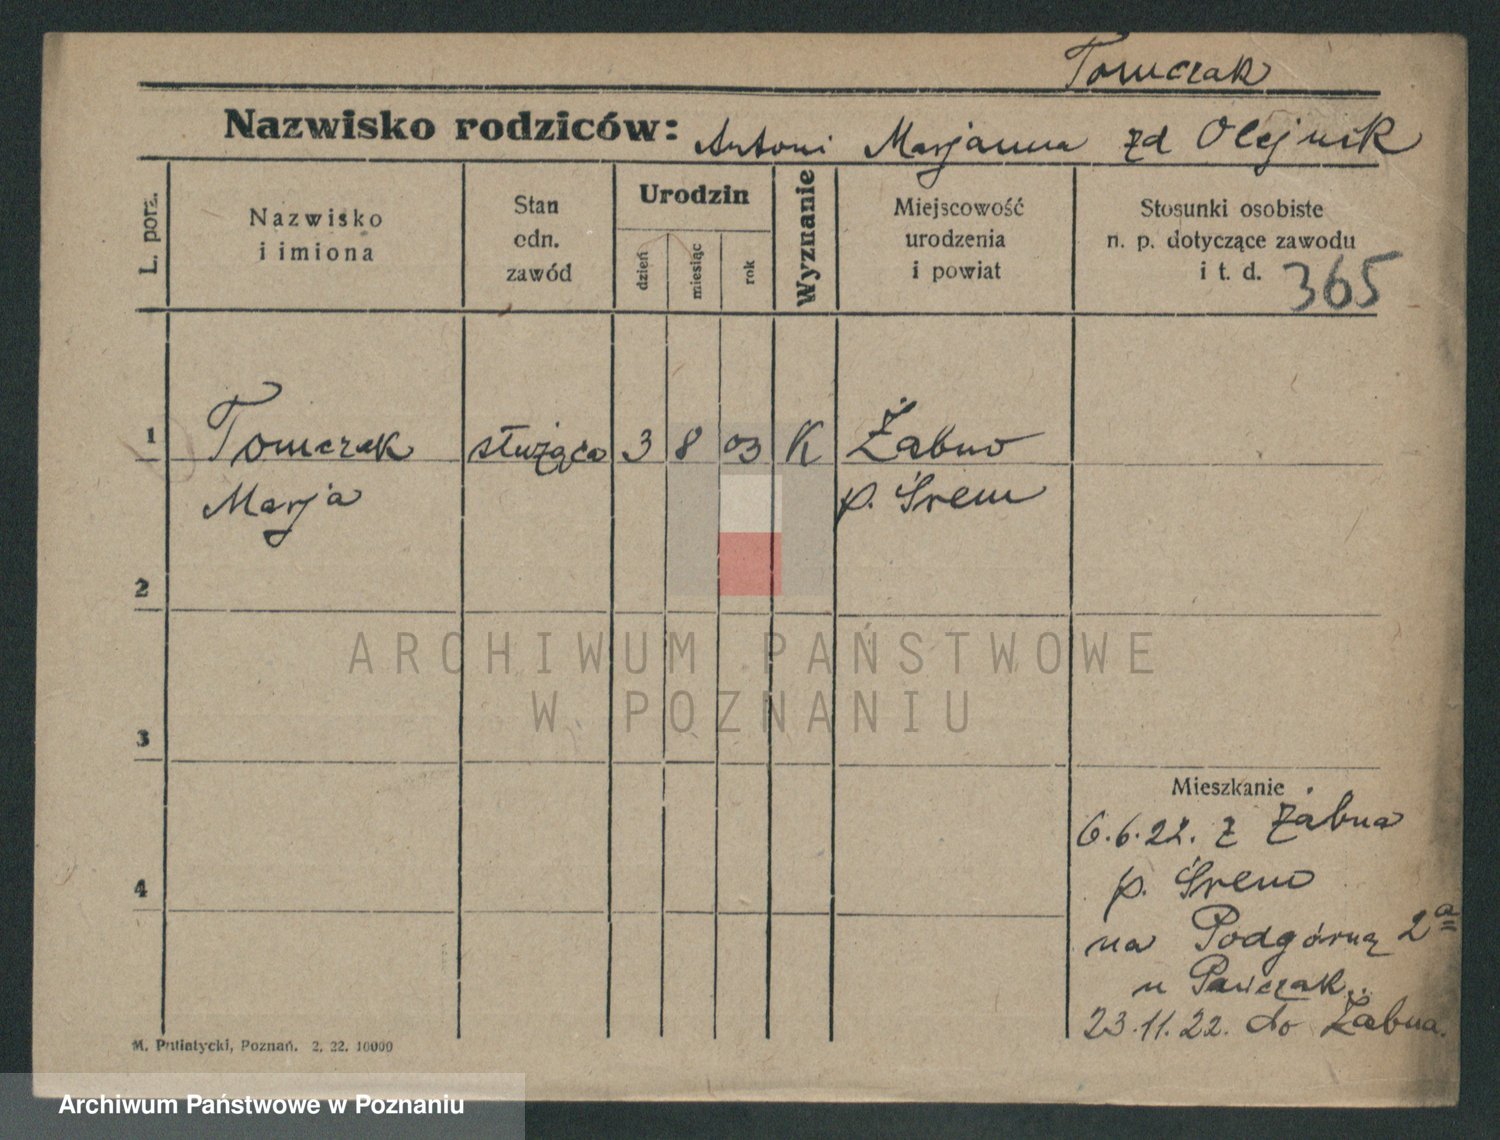 Tomczak
Nazwisko rodziców: Antoni Marjanna zd Olejnik
L. porz.
Nazwisko
i imiona
Stan
odn.
zawód
Urodzin
dzień
miesiąc
rok
Wyznanie
Miejscowość
urodzenia
i powiat
Stosunki osobiste
n. p. dotyczące zawodu
i t. d. 365
1 Tomczak służąca 3 8 03 K Żabno
Marja p. Śrem
2
3
4
Mieszkanie
6.6.22. z Żabna
p. Śrem
na Podgórną 2a
u Pańczak.
23.11.22. do Żabna.
M. Putiatycki, Poznań. 2. 22. 10000
ARCHIWUM PAŃSTWOWE
W POZNANIU
Archiwum Państwowe w Poznaniu